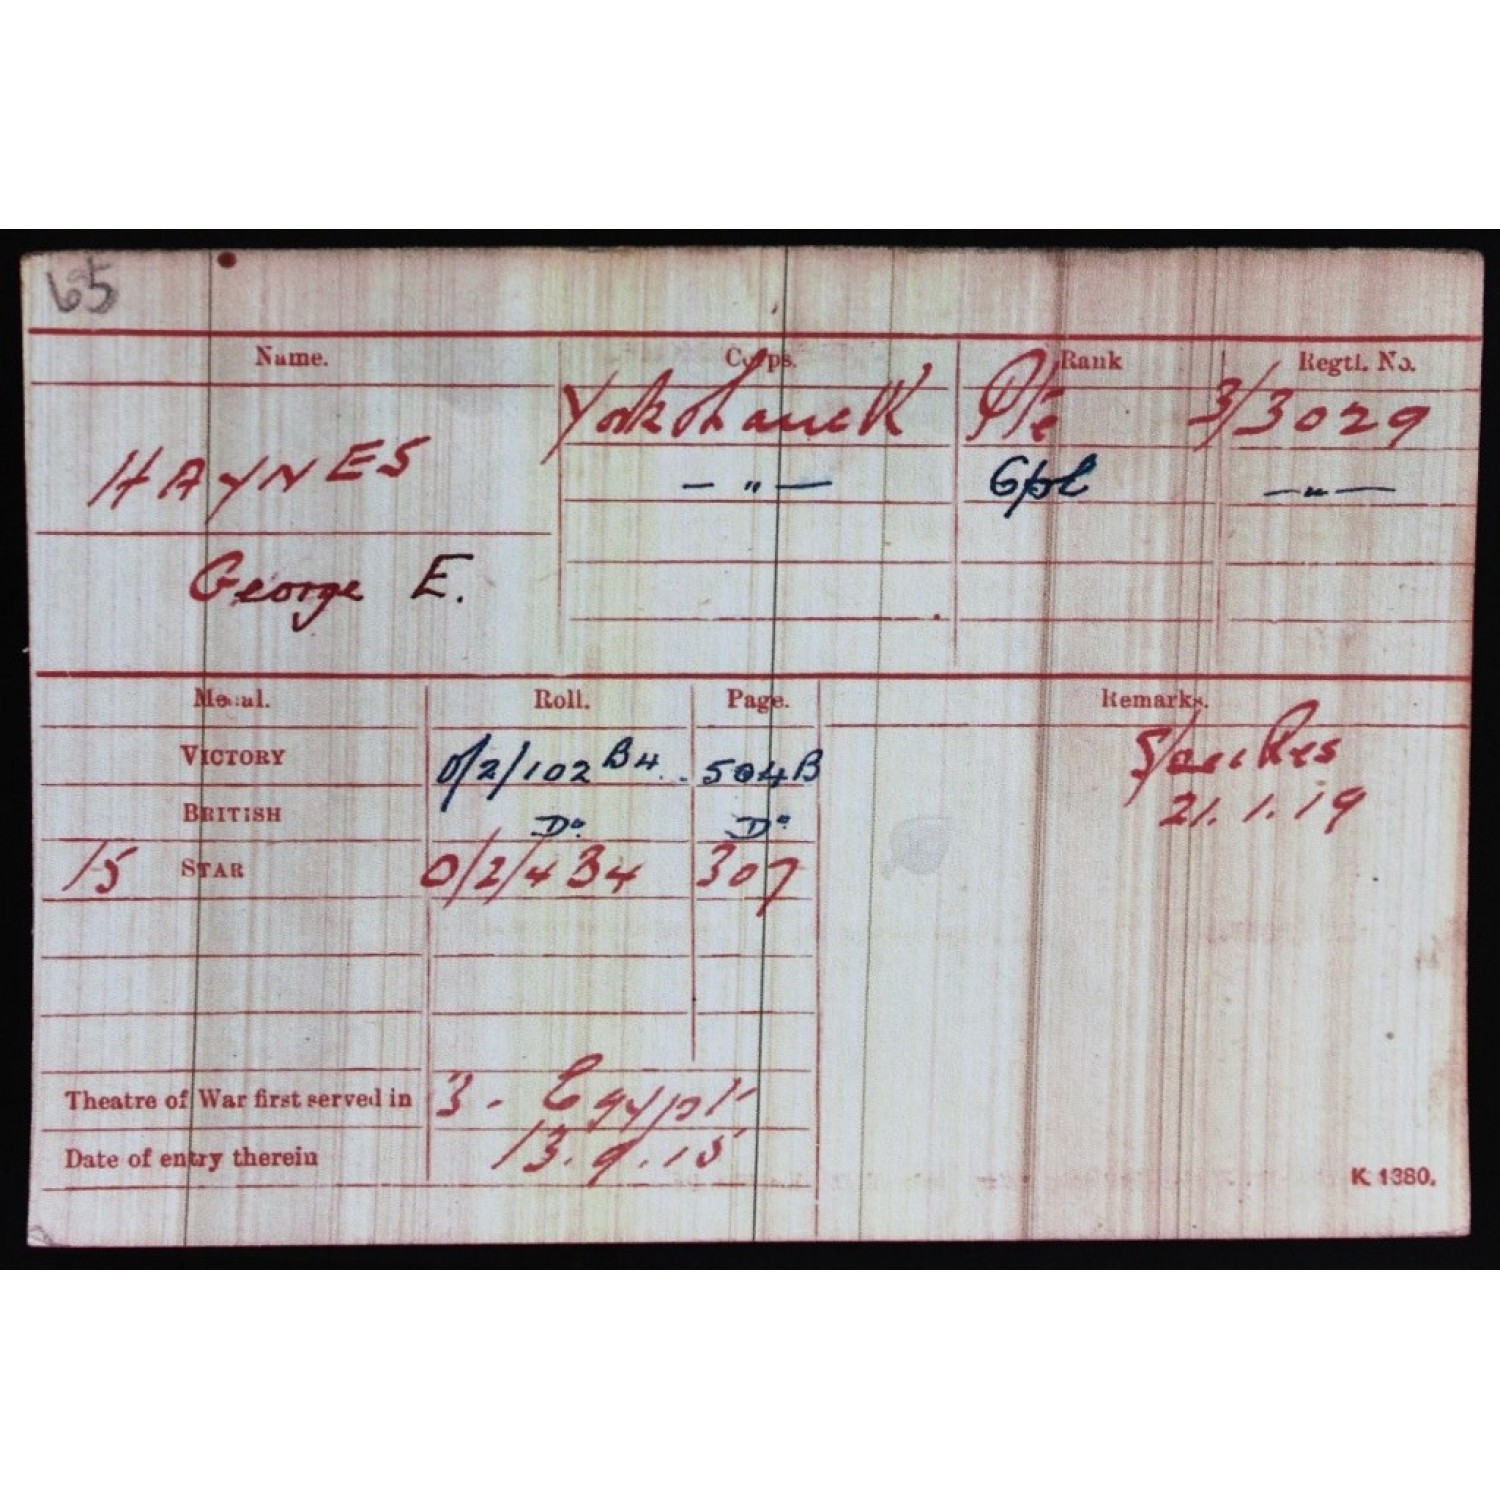 65
Name. Corps. Rank Regtl. No.
HAYNES York & Lanc R Pte 3/3029
— " — Cpl — " —
George E.
Medal. Roll. Page. Remarks.
VICTORY O/2/102 B4 504B
BRITISH Do Do
15 STAR O/2/434 307
21.1.19
Theatre of War first served in 3 - Egypt
Date of entry therein 13.9.15
K 1380.